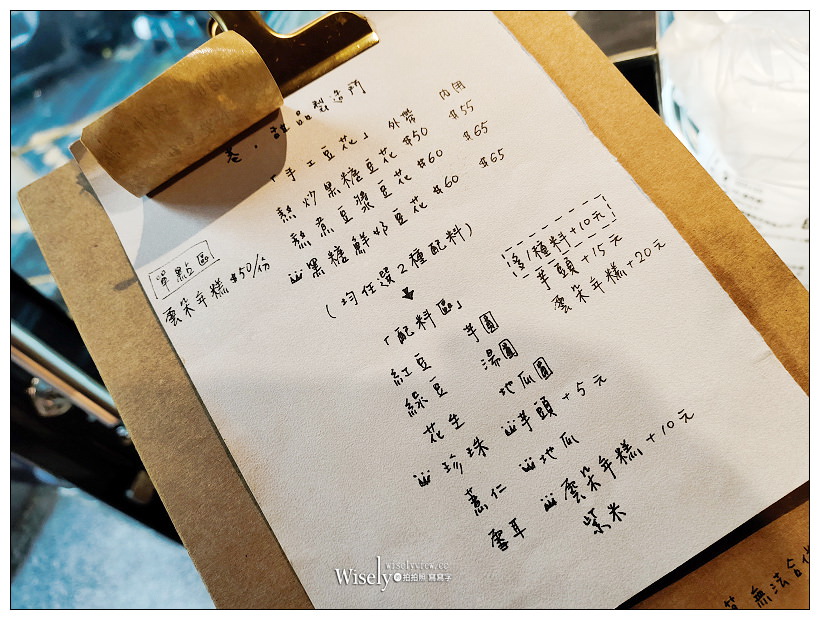 巷，甜品製造所
「手工豆花」 外帶 內用
熬炒黑糖豆花 $50 $55
熬煮豆漿豆花 $60 $65
黑糖鮮奶豆花 $60 $65
(均任選2種配料)
單點區
雲朵年糕 $50/份
多1種料+10元
芋頭+15元
雲朵年糕+20元
「配料區」
紅豆 芋圓
綠豆 湯圓
花生 地瓜圓
珍珠 芋頭+5元
薏仁 地瓜
雪耳 雲朵年糕+10元
紫米
無法合
wiselyview.cc
Wisely 拍拍照寫寫字